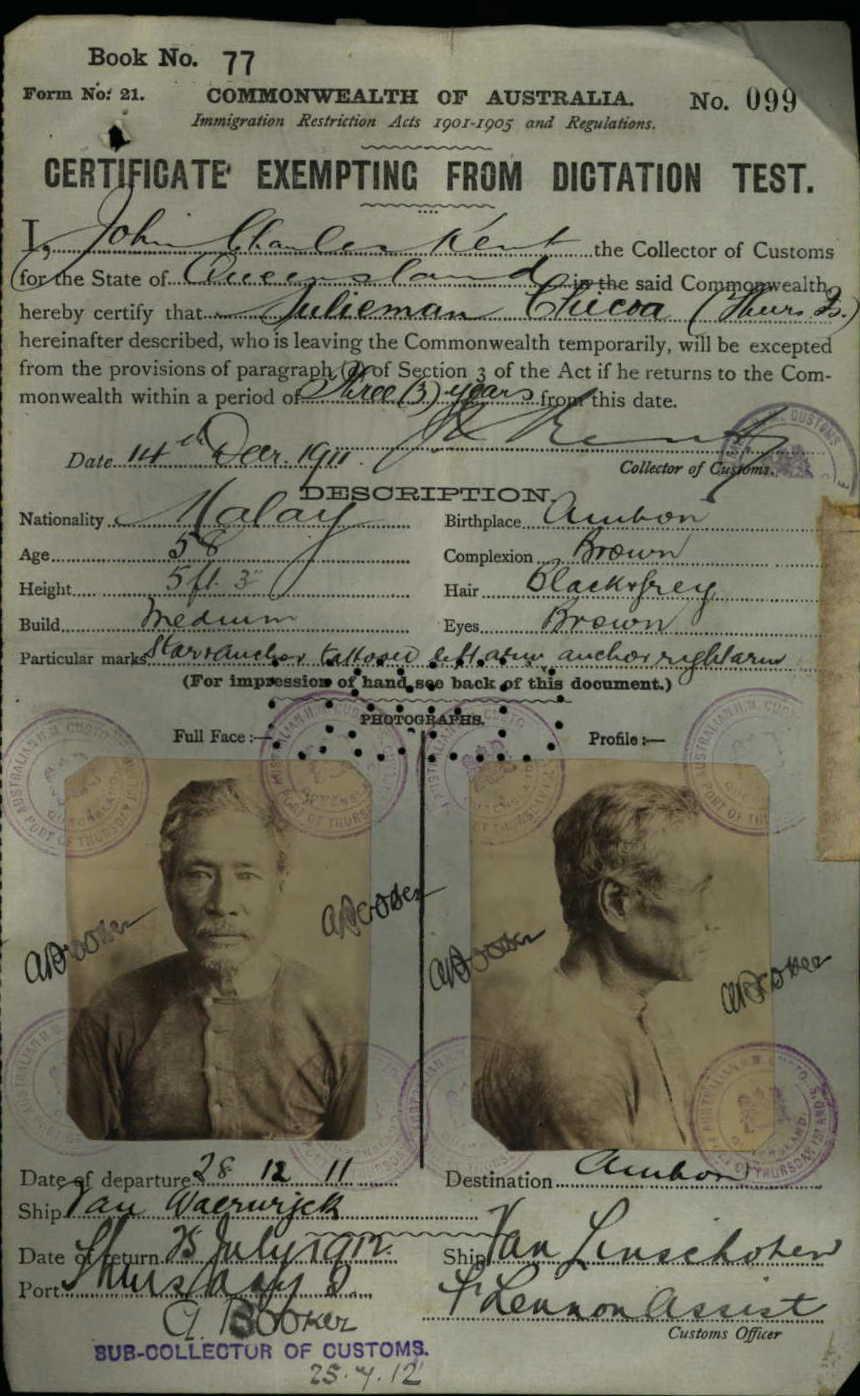 Book No. 77
Form No. 21. COMMONWEALTH OF AUSTRALIA. No. 099
Immigration Restriction Acts 1901-1905 and Regulations.
CERTIFICATE EXEMPTING FROM DICTATION TEST.
I, John Charles Kent the Collector of Customs
for the State of Queensland in the said Commonwealth,
hereby certify that Julieman Chicoa (Thurs Is.)
hereinafter described, who is leaving the Commonwealth temporarily, will be excepted
from the provisions of paragraph (a) of Section 3 of the Act if he returns to the Com-
monwealth within a period of Three (3) years from this date.
Date 14th Decr. 1911. Kent
Collector of Customs.
DESCRIPTION.
Nationality Malay Birthplace Ambon
Age 58 Complexion Brown
Height 5 ft 3" Hair Black & grey
Build Medium Eyes Brown
Particular marks Star & anchor tattooed left arm, anchor right arm
(For impression of hand see back of this document.)
PHOTOGRAPHS.
Full Face :— Profile :—
Date of departure 28 12 11 Destination Ambon
Ship Van Waerwijck
Date of return 25 July 1912 Ship Van Linschoten
Port Thursday I. F Lennon Assist
A. Booker Customs Officer
SUB-COLLECTOR OF CUSTOMS.
25.7.12